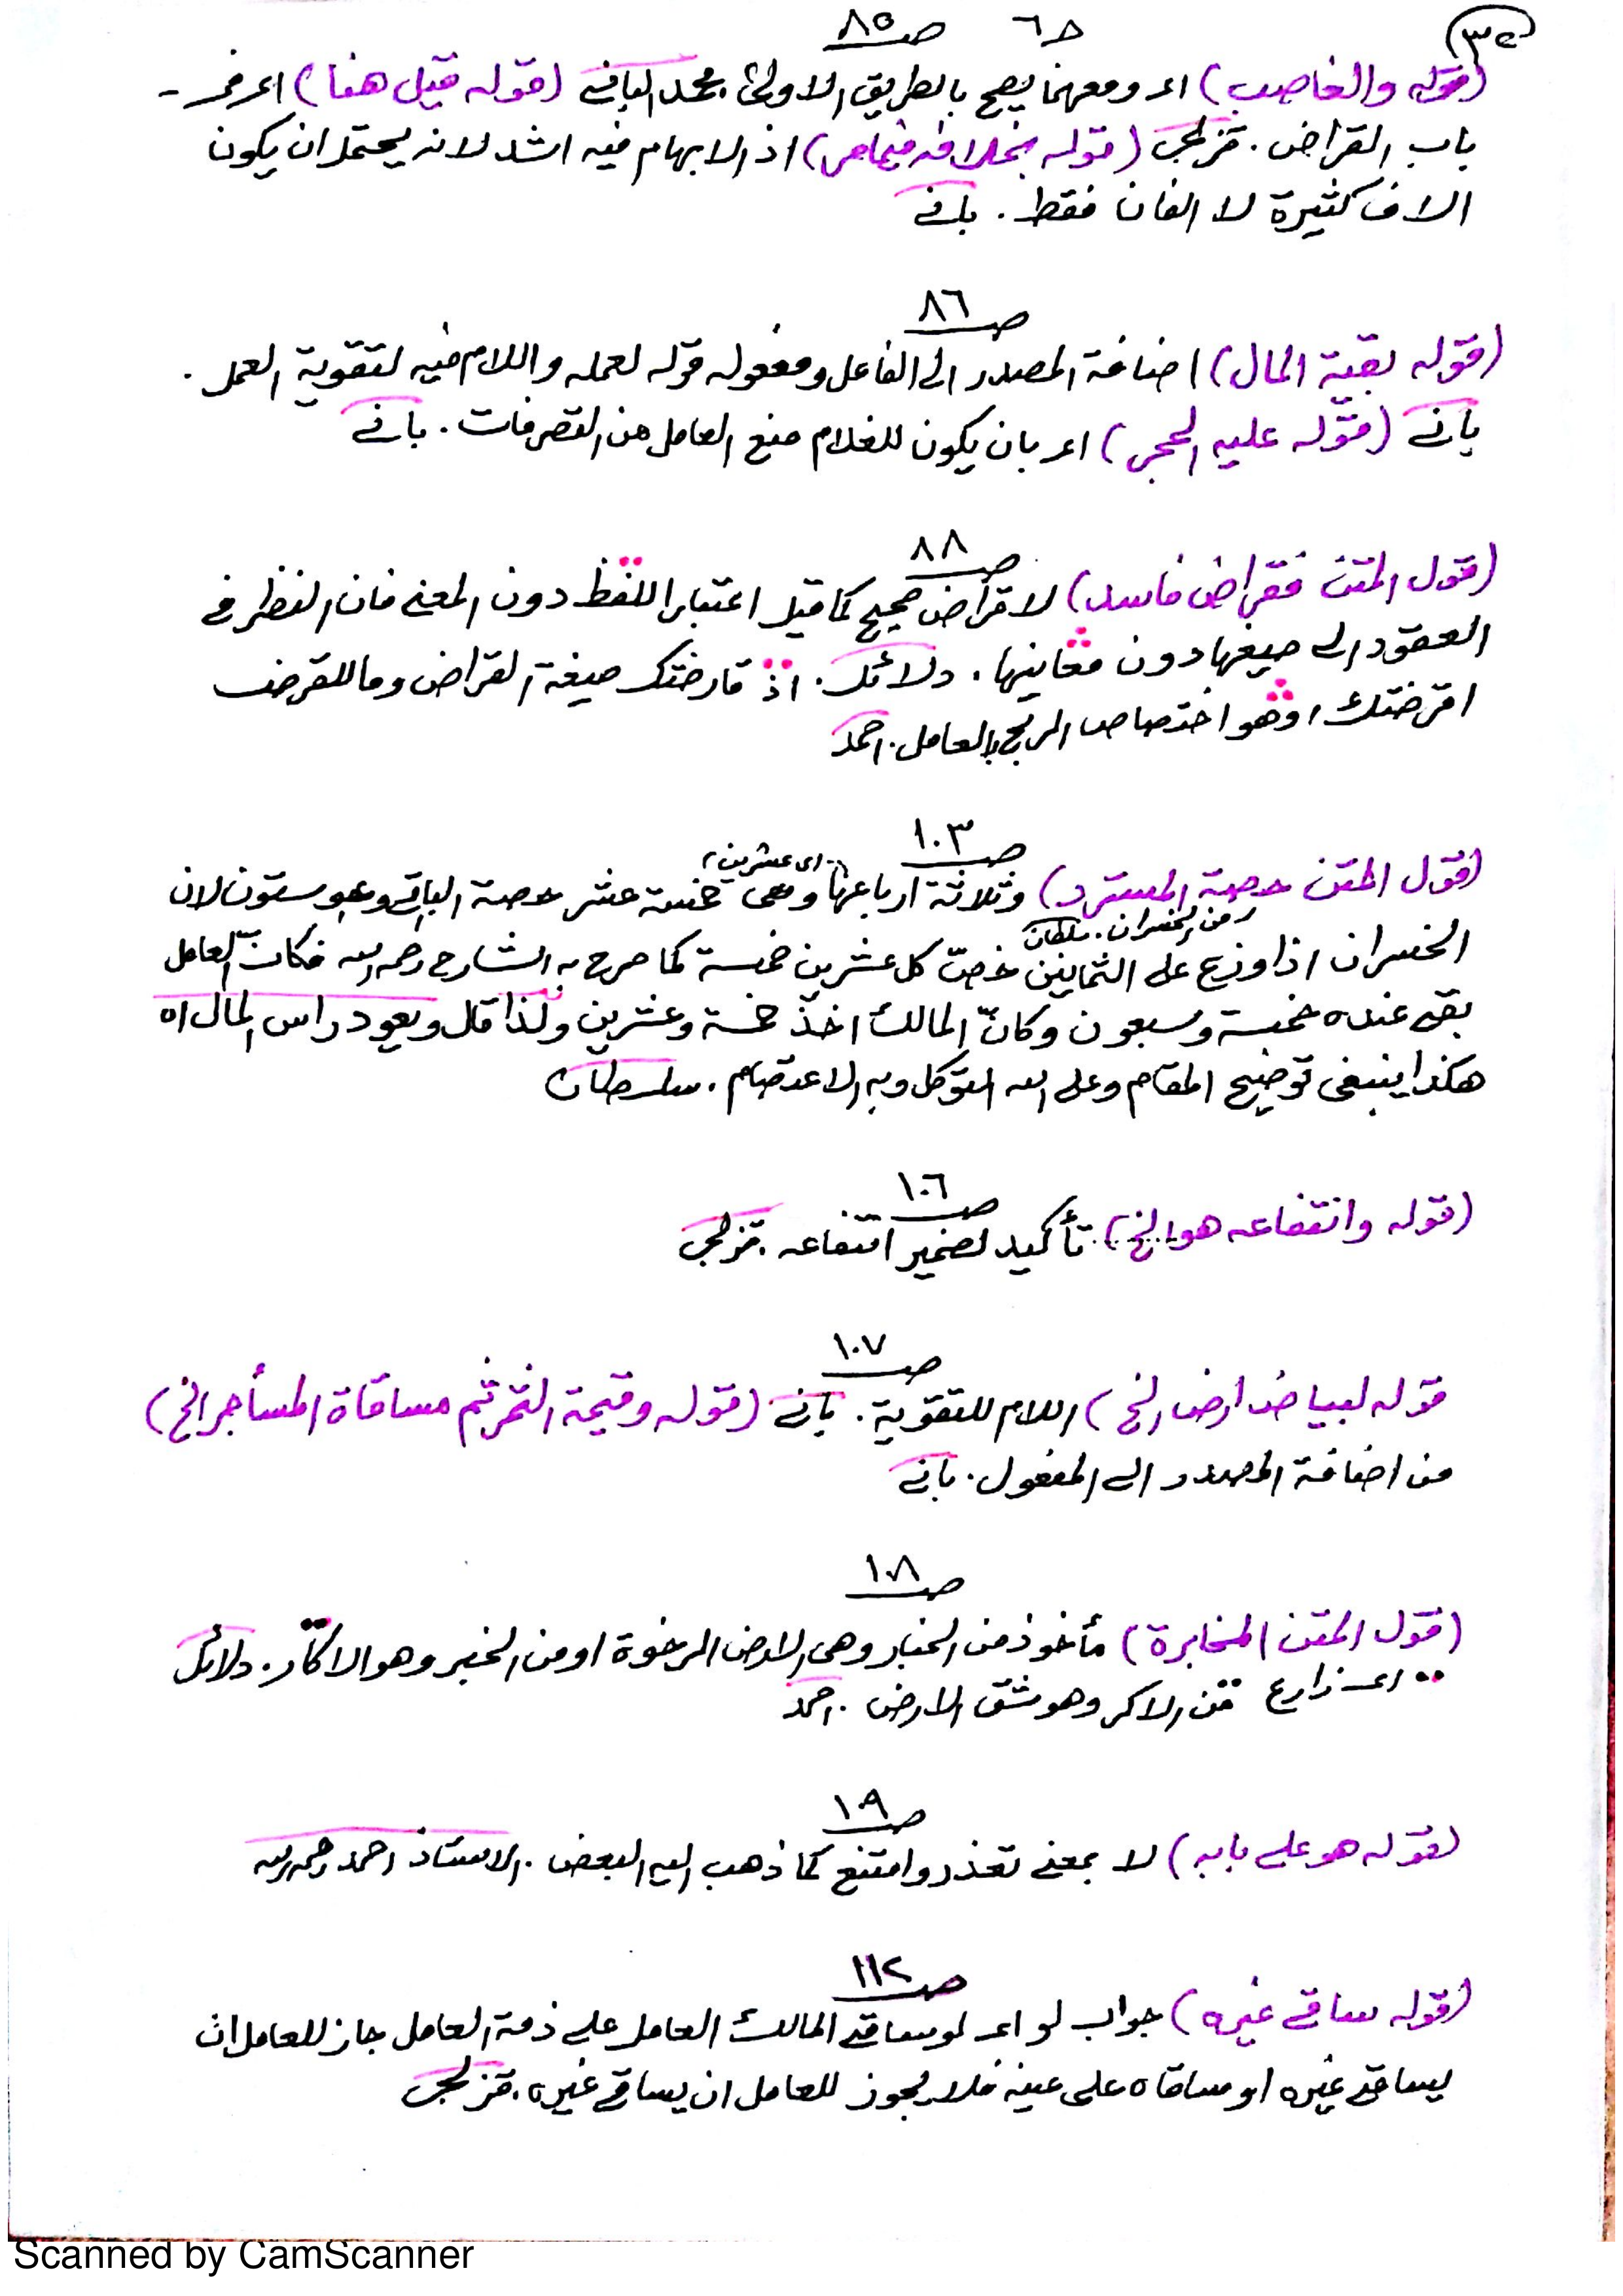 ٣٢
ح٦ ص٨٥
(قوله والغاصب) اى ومعهما يصح بالطريق الاولى. محمد البانى (قوله قبيل هنا) اى فى -
باب القراض. قزلجى (قوله بخلافه فيما مر) اذ الابهام فيه اشد لانه يحتمل ان يكون
الاف كثيرة لا الفان فقط. بانى
ص٨٦
(قوله بقية المال) اضافة المصدر الى الفاعل ومفعوله قوله لعمله واللام فيه لتقوية العمل.
بانى (قوله عليه الحجر) اى بان يكون للغلام منع العامل من التصرفات. بانى
ص٨٨
(قول المتن فقراض فاسد) لا قراض صحيح كما قيل اعتبارا اللفظ دون المعنى فان النظر فى
العقود الى صيغها دون معانيها. دلائل. اذ قارضتك صيغة القراض وما للقرض
اقرضتك، وهو اختصاص الربح بالعامل. احمد
ص١٠٣
(قول المتن حصة المسترد) وثلاثة ارباعها وهى خمسة عشر حصة الباقى وهو ستون لان
(اى عشرين)
من الخسران. سلطان
الخسران اذا وزع على الثمانين خصّ كل عشرين خمسة كما صرح به الشارح رحمه الله فكانّ العامل
بقى عنده خمسة وسبعون وكانّ المالك اخذ خمسة وعشرين ولذا قال ويعود راس المال اه
هكذا ينبغى توضيح المقام وعلى الله التوكل وبه الاعتصام. سلطان
ص١٠٦
(قوله وانتفاعه هو الخ) تأكيد لضمير انتفاعه. قزلجى
ص١٠٧
قوله لبياض ارض الخ) اللام للتقوية. بانى (قوله وقيمة الثمر ثم مساقاة المستأجر الخ)
من اضافة المصدر الى المفعول. بانى
ص١٠٨
(قول المتن المخابرة) مأخوذ من الخبار وهى الارض الرخوة او من الخبير وهو الاكار. دلائل
اى زارع من الاكر وهو شق الارض. احمد
ص١٠٩
(قوله هو على بابه) لا بمعنى تعذر وامتنع كما ذهب اليه البعض. الاستاذ احمد رحمه الله
ص١١٢
(قوله ساقى غيره) جواب لو اى لو ساقى المالك العامل على ذمة العامل جاز للعامل ان
يساقى غيره او ساقاه على عينه فلا يجوز للعامل ان يساقى غيره. قزلجى
Scanned by CamScanner